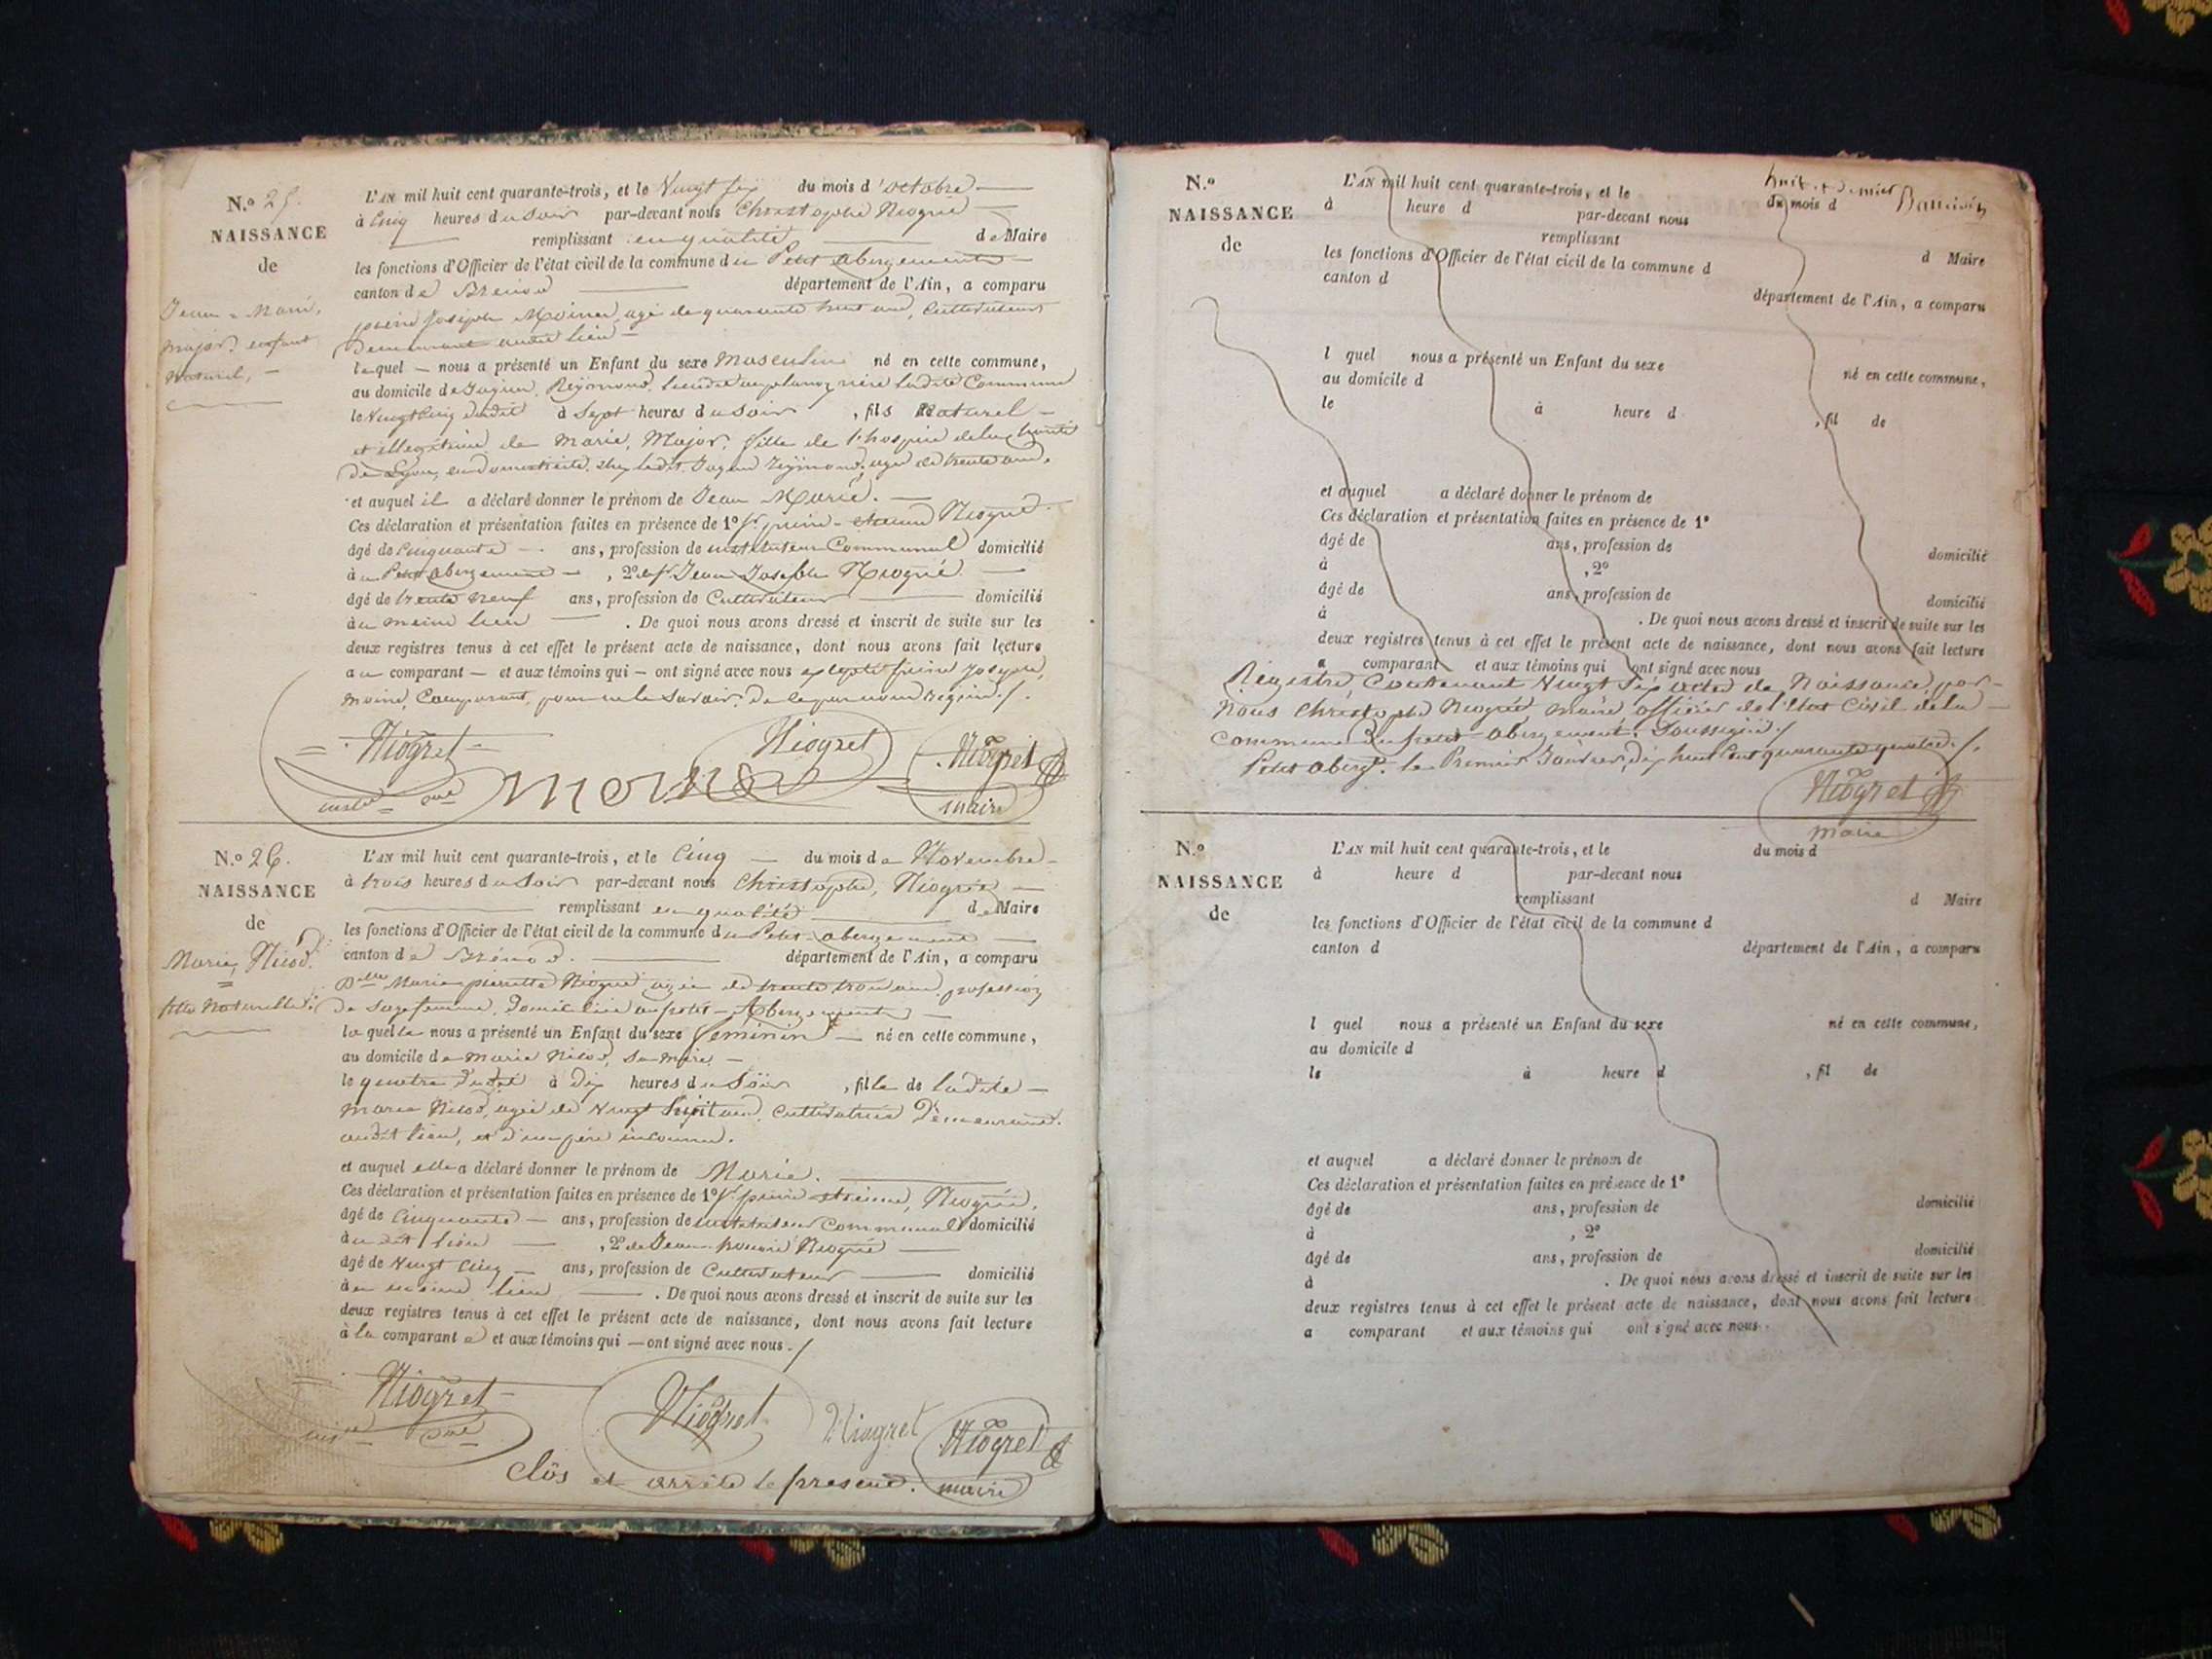 N.o 25.
NAISSANCE
de
Jean - Marie,
major. enfant
Naturel, -
L'AN mil huit cent quarante-trois, et le Vingt six du mois d'octobre
à Cinq heures du soir par-devant nous Christophe Niogret
remplissant en qualité de Maire
les fonctions d'Officier de l'état civil de la commune du Petit abergement
canton de Brenod département de l'Ain, a comparu
pierre Joseph Moine, agé de quarante huit ans, Cultivateur
Demeurant audit lieu
lequel nous a présenté un Enfant du sexe Masculin né en cette commune,
au domicile de Reymond, ladite Commune
le Vingt cinq dudit à Sept heures du soir, fils Naturel
et illegitime de Marie, Major, fille de l'hospice de la charité
de Lyon, en domesticité, chez ledit Reymond, agée de trente ans.
et auquel il a déclaré donner le prénom de Jean Marie.
Ces déclaration et présentation faites en présence de 1° Sr pierre - etienne Niogret
âgé de Cinquante ans, profession de instituteur Communal domicilié
à au Petit abergement, 2° de Sr Jean Joseph Niogret
âgé de trente neuf ans, profession de Cultivateur domicilié
à au meme lieu. De quoi nous avons dressé et inscrit de suite sur les
deux registres tenus à cet effet le présent acte de naissance, dont nous avons fait lecture
au comparant et aux témoins qui ont signé avec nous excepté pierre Joseph,
moine, Comparant, pour ne le Savoir. De ce par nous requis./.
Niogret Niogret Niogret
moine maire
N.o 26.
NAISSANCE
de
Marie, Nicod.
fille Naturelle.
L'AN mil huit cent quarante-trois, et le Cinq du mois de Novembre
à trois heures du soir par-devant nous Christophe, Niogret
remplissant en qualité de Maire
les fonctions d'Officier de l'état civil de la commune du Petit abergement
canton de Brénod. département de l'Ain, a comparu
Delle Marie pierrette Niogret agée de trente trois ans, profession
de sage femme, Domiciliée au petit - Abergement
laquelle nous a présenté un Enfant du sexe féminin né en cette commune,
au domicile de Marie Nicod, sa mère,
le quatre dudit à Dix heures du Soir, fille de ladite
Marie Nicod, agée de Vingt huit ans, Cultivatrice Demeurant
audit lieu, et d'un père inconnu.
et auquel elle a déclaré donner le prénom de Marie.
Ces déclaration et présentation faites en présence de 1° Sr pierre etienne, Niogret,
âgé de Cinquante ans, profession de instituteur Communal domicilié
à audit lieu, 2° de Jean Niogret
âgé de Vingt Cinq ans, profession de Cultivateur domicilié
à au meme lieu. De quoi nous avons dressé et inscrit de suite sur les
deux registres tenus à cet effet le présent acte de naissance, dont nous avons fait lecture
à la comparante et aux témoins qui ont signé avec nous./
Niogret Niogret Niogret Niogret
Clôs et arrêté le présent. maire
huit. et dernier
N.o
NAISSANCE
de
L'AN mil huit cent quarante-trois, et le du mois d
à heure d par-devant nous
remplissant
d Maire
les fonctions d'Officier de l'état civil de la commune d
canton d
département de l'Ain, a comparu
l quel nous a présenté un Enfant du sexe né en cette commune,
au domicile d
le à heure d , fil de
et auquel a déclaré donner le prénom de
Ces déclaration et présentation faites en présence de 1°
âgé de ans, profession de domicilié
à , 2°
âgé de ans, profession de domicilié
à . De quoi nous avons dressé et inscrit de suite sur les
deux registres tenus à cet effet le présent acte de naissance, dont nous avons fait lecture
a comparant et aux témoins qui ont signé avec nous
Régistre, Contenant Vingt Six actes de Naissance, par
Nous Christophe Niogret, maire officier de l'état Civil de la
Commune du petit abergement, Soussigné./
Petit aberg.t le Premier Janvier, dix huit Cent quarante quatre./.
Niogret
maire
N.o
NAISSANCE
de
L'AN mil huit cent quarante-trois, et le du mois d
à heure d par-devant nous
remplissant d Maire
les fonctions d'Officier de l'état civil de la commune d
canton d département de l'Ain, a comparu
l quel nous a présenté un Enfant du sexe né en cette commune,
au domicile d
le à heure d , fil de
et auquel a déclaré donner le prénom de
Ces déclaration et présentation faites en présence de 1°
âgé de ans, profession de domicilié
à , 2°
âgé de ans, profession de domicilié
à . De quoi nous avons dressé et inscrit de suite sur les
deux registres tenus à cet effet le présent acte de naissance, dont nous avons fait lecture
a comparant et aux témoins qui ont signé avec nous.